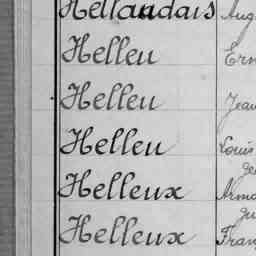 Hellandais Aug
Helleu Ern
Helleu Jean
Helleu Louis
Helleux
Helleux Fran